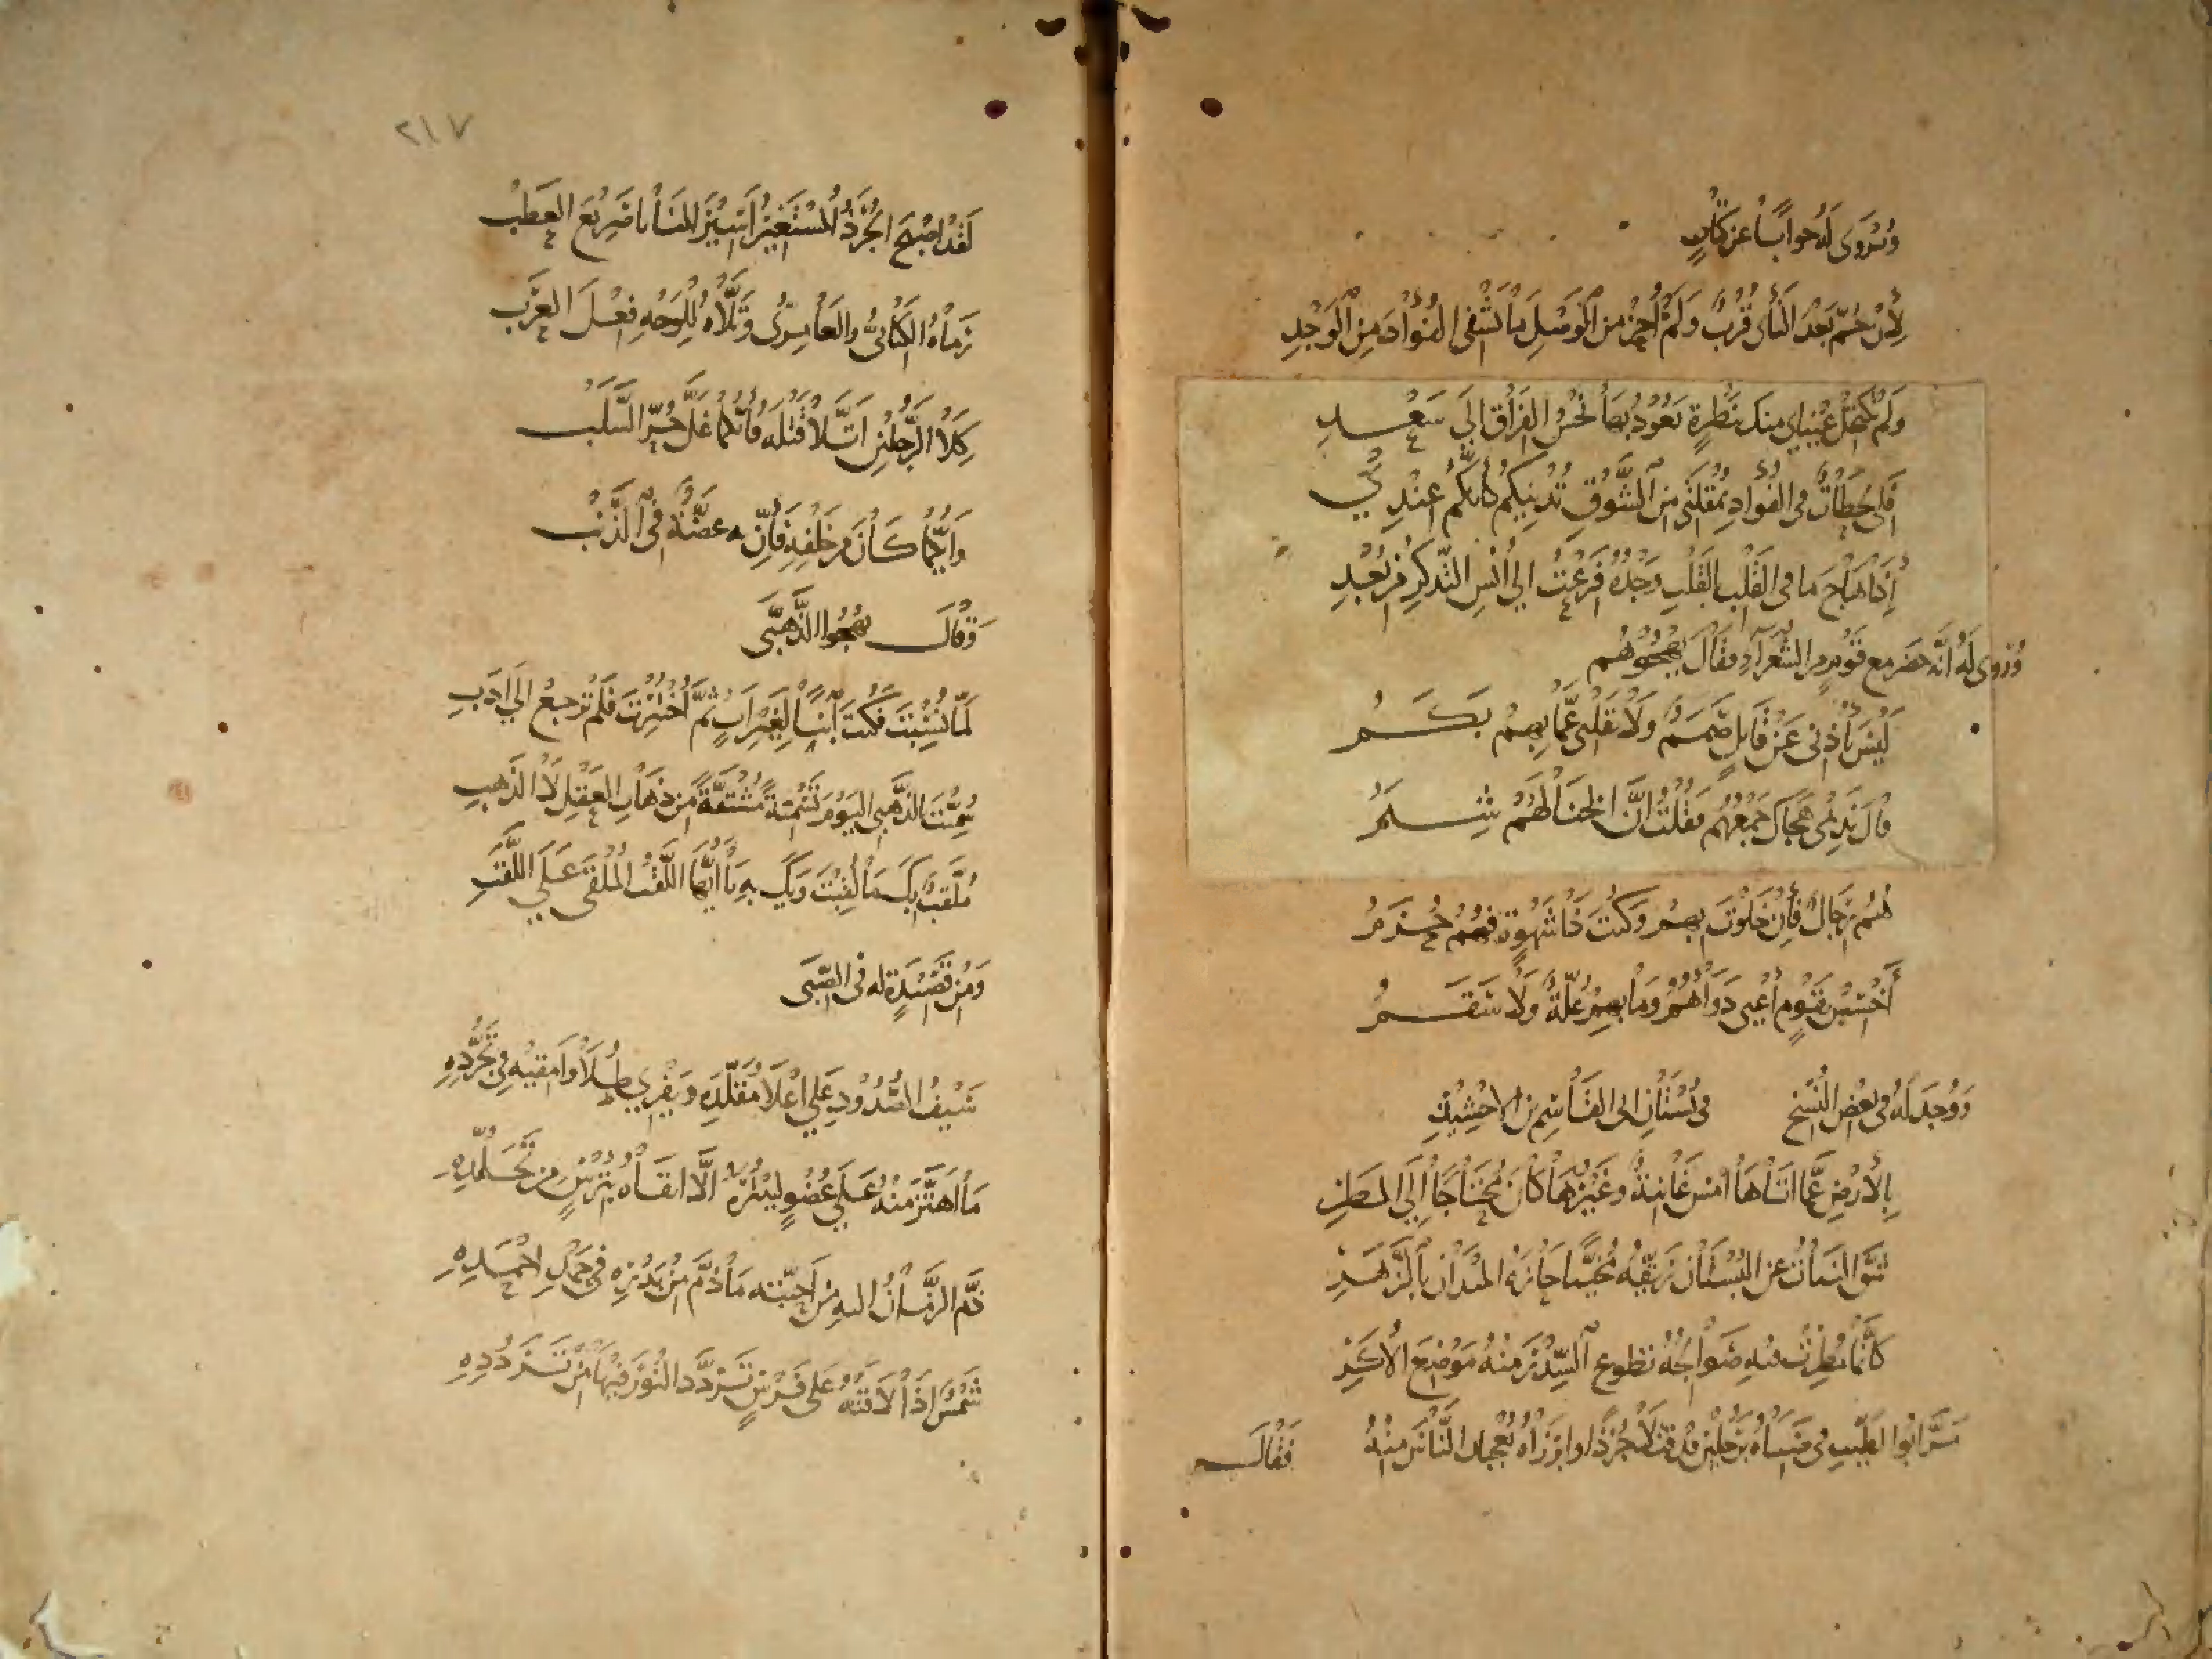 وتروى له جوابًا عن كتاب
لئن حم بعد النأي قرب ولم أحز من الوصل ما تشفي الفؤاد من الوجد
ولم تكتحل عيناي منك بنظرة يعود بها نحس الفراق الى سعد
فلي لحظات في الفؤاد بمقلتي من الشوق تدنيكم كأنكم عندي
إذا هاج ما في القلب للقلب وحده فزعت الى أنس التذكر من بعد
وروى له أنه حضر مع قوم من الشعراء فقال يهجوهم
ليس بأذني عن قائل صمم ولا بقلبي عما بهم بكم
قال نديمي هجاك جمعهم فقلت ان الخنا لهم شيم
هم رجال فإن خلوت بهم وكنت ذا شهوة فهم حرم
أخسس بقوم أعيى دواؤهم وما بهم علة ولا سقم
ووجد له في بعض النسخ في بستان ابي القاسم بن الاخشيد
بالأرض عما اتاها منن غانية وغيرها كان محتاجا إلى المطر
شق النبات عن البستان ريقه محييا جاره الميدان بالزهر
كأنما مطرت فيه صوالجة تطوع السدر منه موضع الأكر
مر ابو الطيب في صباه برجلين قد قتلا جرذا وابرزاه يعجبان الناس منه فقال
٢١٧
لقد اصبح الجرذ المستغير اسير المنايا صريع العطب
رماه الكناني والعامري وتلاه للوجه فعل العرب
كلا الرجلين اتلا قتله فأيكما غل حر السلب
وايكما كان من خلفه فإن به عضة في الذنب
وقال يهجوا الذهبي
لما نسبت فكنت ابنًا لغير اب ثم اختبرت فلم ترجع الى ادب
سميت بالذهبي اليوم تسمية مشتقة من ذهاب العقل لا الذهب
ملقب بك ما لقبت ويك به يا أيها اللقب الملقى على اللقب
ومن قصيدة له في الصبى
سيف الصدود على اعلا مقلده ويفري طلا وامقيه في تجرده
ما اهتز منه على عضو ليبتره الا اتقاه بترس من تجلده
ذم الزمان اليه من احبته ما ذم من بدره في حمد لاحمده
شمس اذا لاقته على فرس تردد النور فيها من تردده